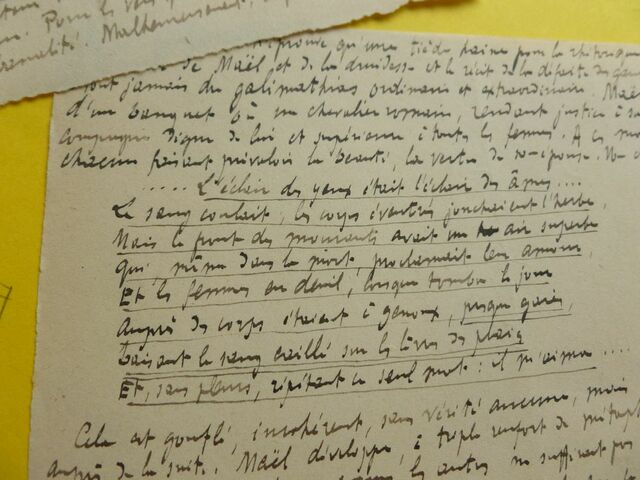 Pour les
Malheureusement,
qu'une tiède haine pour la rhétorique
de Maël et de la druidesse et le récit de la défaite du
sont jamais du galimathias ordinaire et extraordinaire. Maël
d'un banquet où un chevalier romain, rendant justice à sa
compagne digne de lui et supérieure à toutes les femmes. A ces mots
chacun faisant prévaloir la beauté, la vertu de son épouse.
..... L'éclair des yeux était l'éclair des âmes....
Le sang coulait, les corps éventrés jonchaient l'herbe,
Mais le front des mourants avait un air superbe
qui, même dans la mort, proclamait leur amour,
Et les femmes en deuil, lorsque tomba le jour
Auprès des corps étaient à genoux, presque gaies,
Baisant le sang caillé sur les lèvres des plaies
Et, sans pleurs, répétant ce seul mot : il m'aima ....
Cela est gonflé, incohérent, sans vérité aucune, mais
auprès de la suite. Maël développe, à triple renfort de
les autres ne suffisent pas